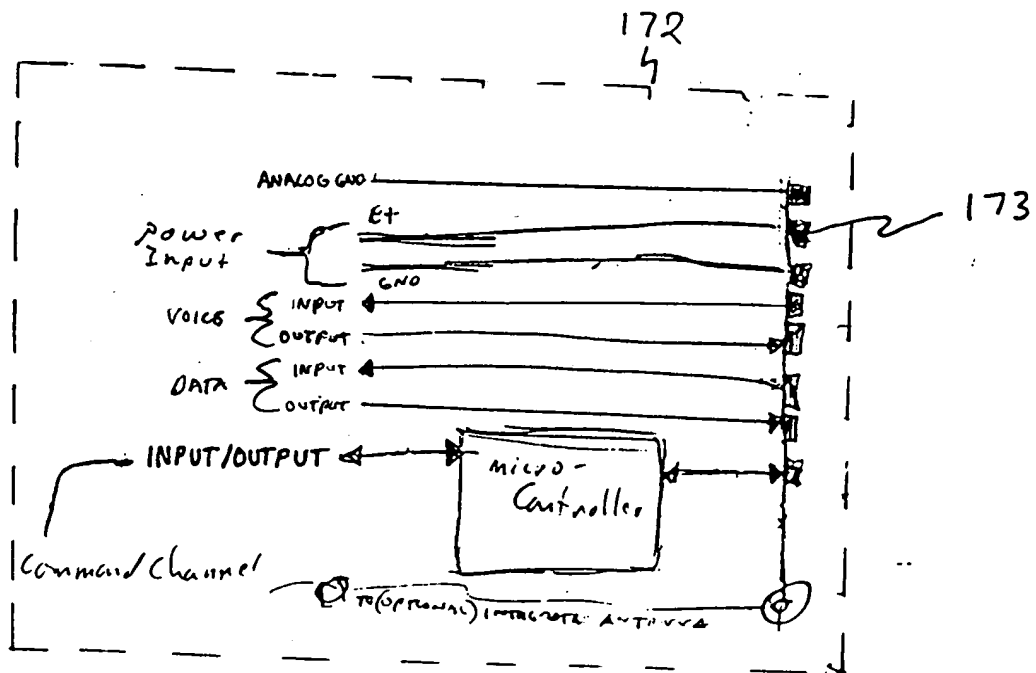 172
ANALOG GND
173
E+
Power
Input
GND
VOICE
INPUT
OUTPUT
DATA
INPUT
OUTPUT
INPUT/OUTPUT
micro-
Controller
Command Channel
TO (OPTIONAL) INTEGRATE ANTENNA